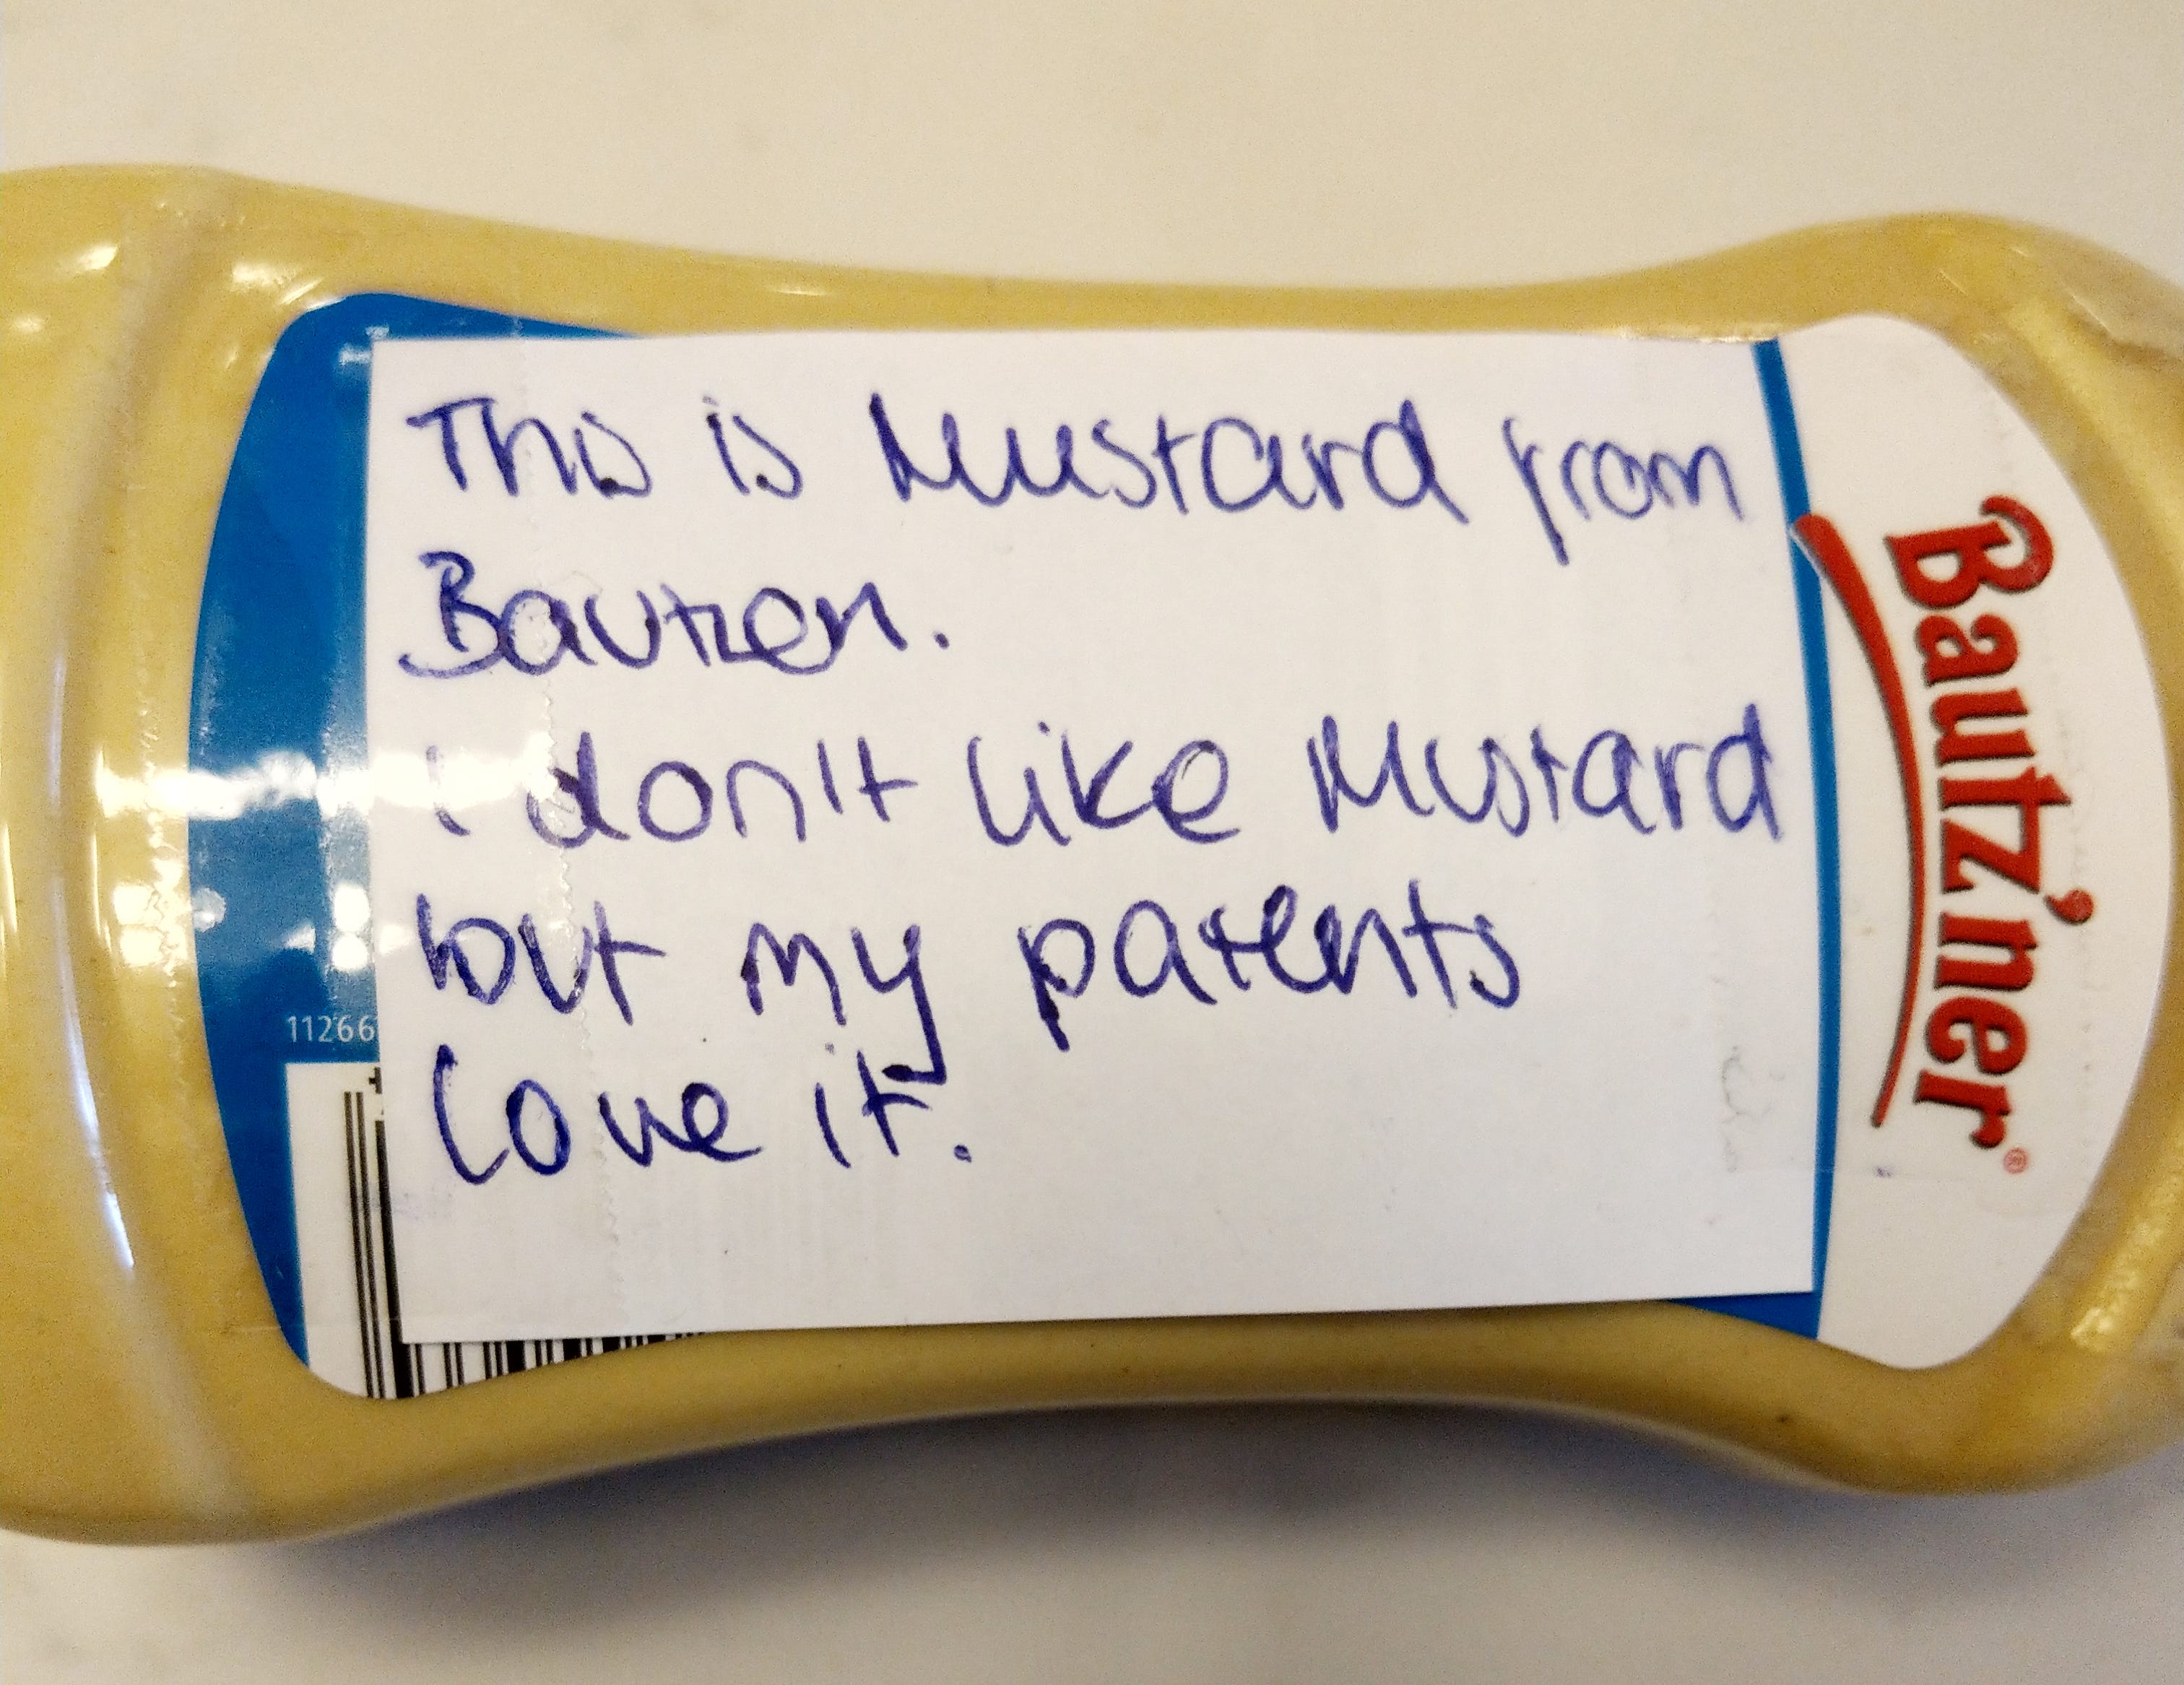 This is Mustard from
Bautzen.
I don't like Mustard
but my parents
love it.
Bautz'ner®
11266